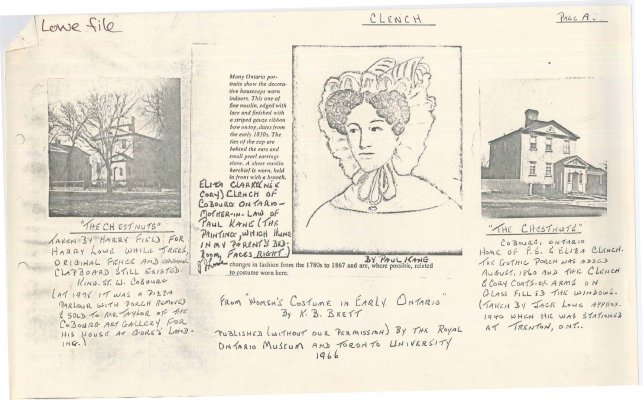 Lowe file
CLENCH
PAGE A.
Many Ontario por-
traits show the decora-
tive housecaps worn
indoors. This one of
fine muslin, edged with
lace and finished with
a striped gauze ribbon
bow on top, dates from
the early 1830s. The
ties of the cap are
behind the ears and
small pearl earrings
show. A sheer muslin
kerchief is worn, held
in front with a brooch.
ELIZA CLARKE (NEE
CORY) CLENCH OF
COBOURG ONTARIO -
MOTHER-IN-LAW OF
PAUL KANE (THE
PAINTING, WHICH HUNG
IN MY PARENT'S BED-
ROOM, FACES RIGHT)
BY PAUL KANE
changes in fashion from the 1780s to 1867 and are, where possible, related
to costume worn here.
"THE CHESTNUTS"
TAKEN BY HARRY FIELD FOR
HARRY LOWE WHILE TREES,
ORIGINAL FENCE AND ORIGINAL
CLAPBOARD STILL EXISTED
KING ST. W. COBOURG
(AT 1978 IT WAS A PIZZA
PARLOUR WITH PORCH REMOVED
& SOLD TO MR TAYLOR OF THE
COBOURG ART GALLERY FOR
HIS HOUSE AT GORE'S LAND-
ING.)
FROM "WOMEN'S COSTUME IN EARLY ONTARIO"
BY K. B. BRETT
PUBLISHED (WITHOUT OUR PERMISSION) BY THE ROYAL
ONTARIO MUSEUM AND TORONTO UNIVERSITY
1966
"THE CHESTNUTS"
COBOURG, ONTARIO
HOME OF F.S. & ELIZA CLENCH.
THE GOTHIC PORCH WAS ADDED
AUGUST, 1860 AND THE CLENCH
& CORY COATS OF ARMS ON
GLASS FILLED THE WINDOWS.
(TAKEN BY JACK LOWE APPROX.
1940 WHEN HE WAS STATIONED
AT TRENTON, ONT..